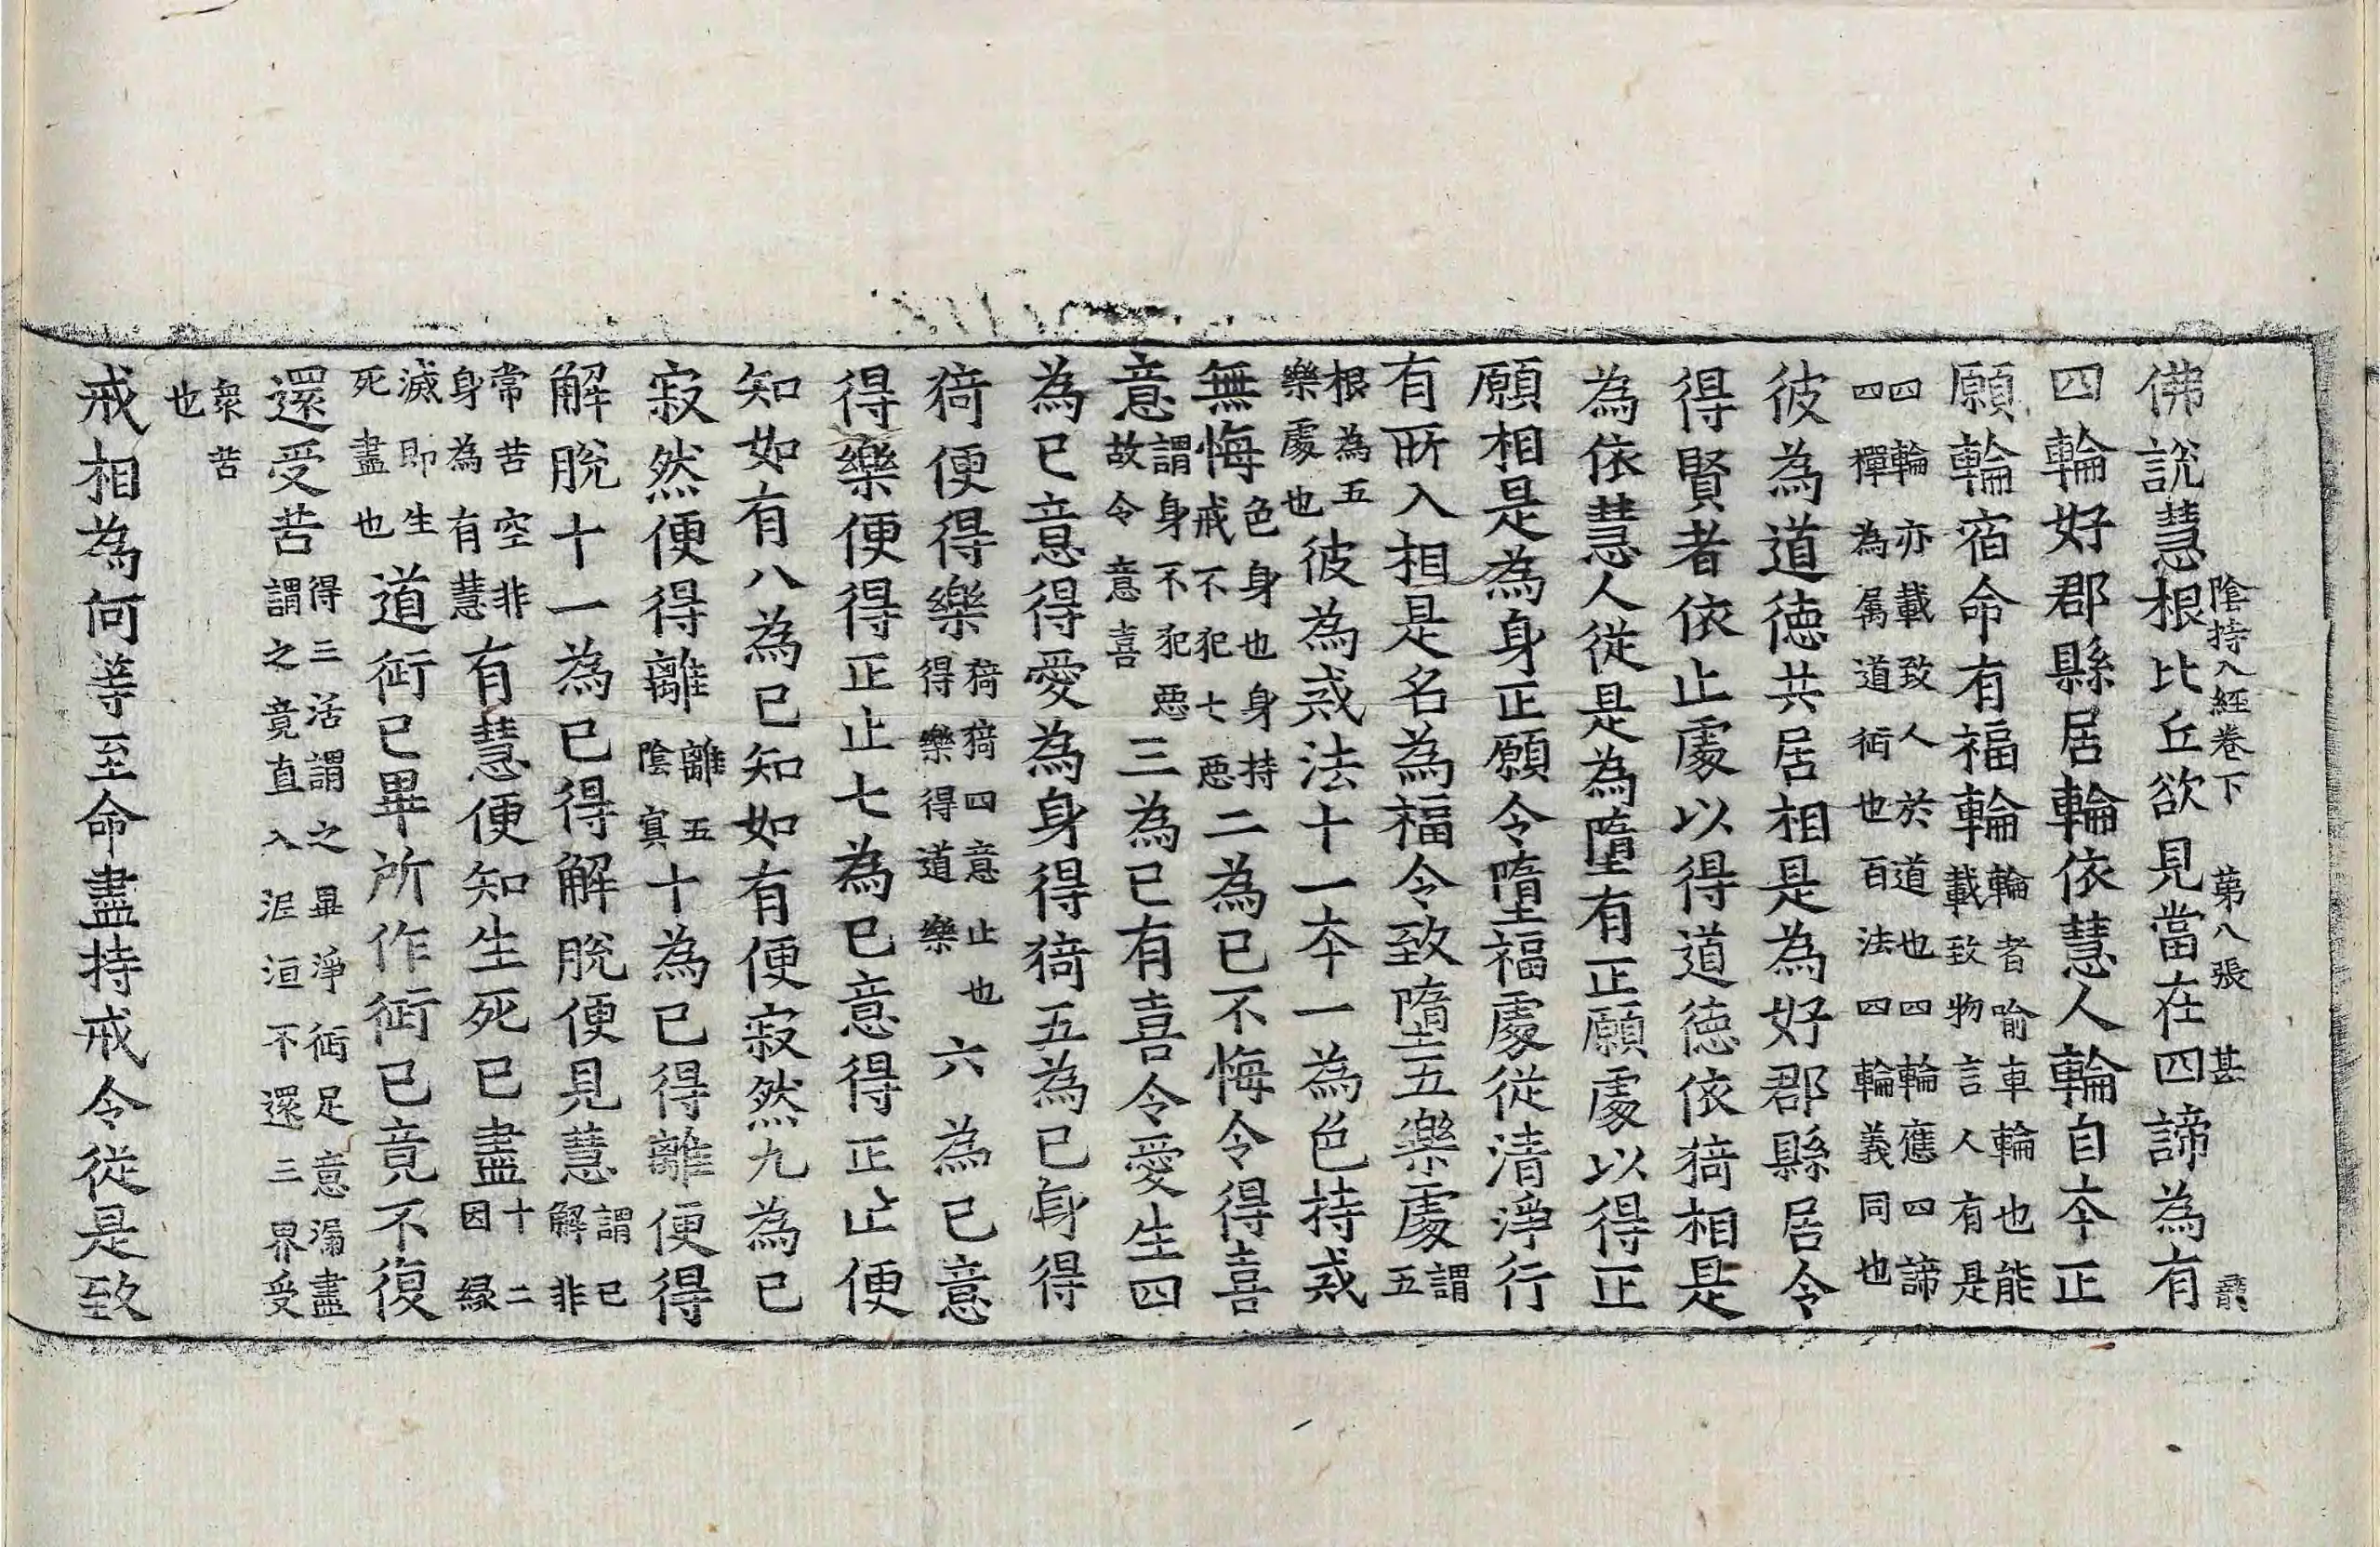 陰持入經卷下 第八張 甚
佛說慧根比丘欲見當在四諦為有
四輪好郡縣居輪依慧人輪自本正
願輪宿命有福輪輪者喻車輪也能載致物言人有是
四輪亦載致人於道也四輪應四諦四禪為屬道術也百法四輪義同也
彼為道德共居相是為好郡縣居令
得賢者依止處以得道德依猗相是
為依慧人從是為墮有正願處以得正
願相是為身正願令墮福處從清淨行
有所入相是名為福令致墮五樂處謂五
根為五樂處也彼為戒法十一本一為色持戒
無悔色身也身持戒不犯七惡二為已不悔令得喜
意謂身不犯惡故令意喜三為已有喜令愛生四
為已意得愛為身得猗五為已身得
猗便得樂猗猗四意止也得樂得道樂六為已意
得樂便得正止七為已意得正止便
知如有八為已知如有便寂然九為已
寂然便得離離五陰寘十為已得離便得
解脫十一為已得解脫便見慧謂已解非
常苦空非身為有慧有慧便知生死已盡十二因緣
滅即生死盡也道術已畢所作術已竟不復
還受苦得三活謂之畢淨術足意漏盡謂之竟直入泥洹不還三界受
衆苦也
戒相為何等至命盡持戒令從是致